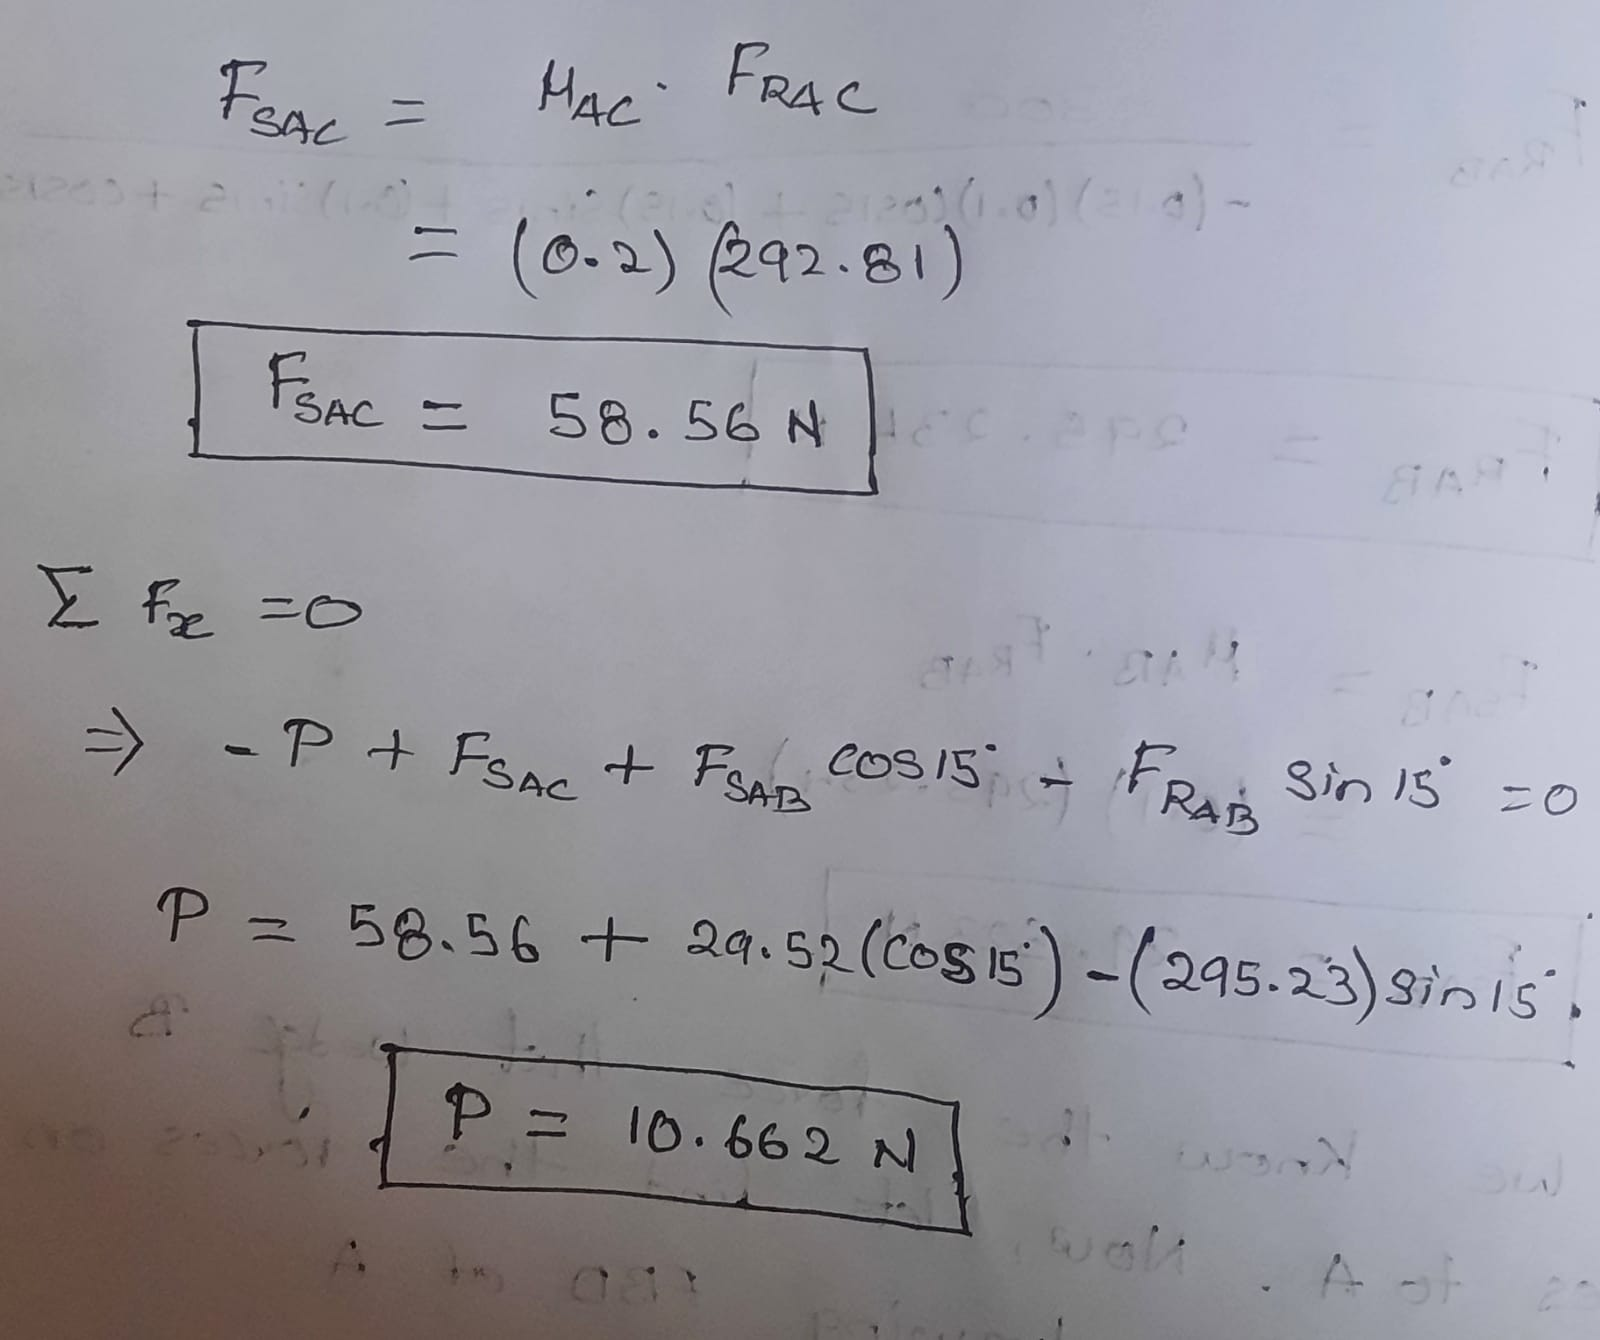 F_SAC = μ_AC · F_RAC
= (0.2) (292.81)
F_SAC = 58.56 N
Σ F_x = 0
⇒ - P + F_SAC + F_SAB cos 15° - F_RAB sin 15° = 0
P = 58.56 + 29.52 (cos 15°) - (295.23) sin 15°.
P = 10.662 N